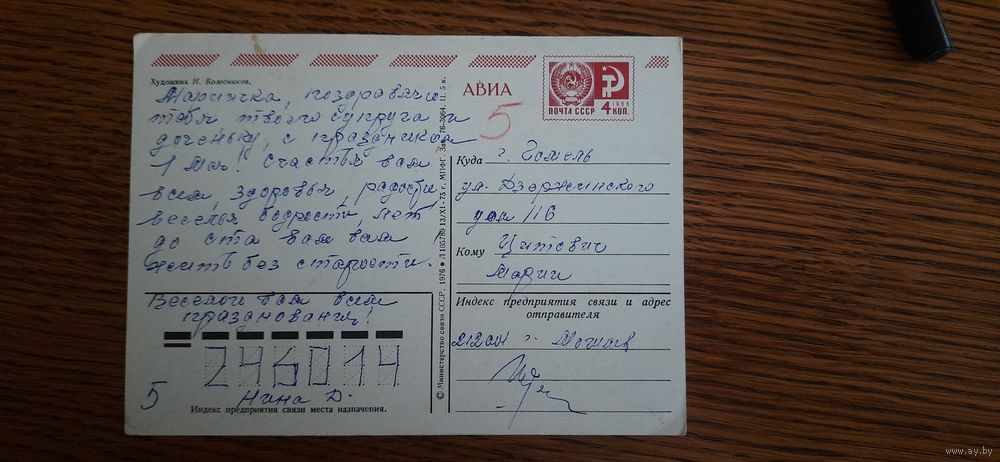 Художник Н. Колесников.
Мариичка, поздравляю
тебя твоего супруга и
доченьку, с праздником
1 Мая!! Счастья вам
всем, здоровья, радости,
веселья бодрости, лет
до ста вам вам
жить без старости.
Веселого вам всем
празднования!
246014
5
Нина Д.
Индекс предприятия связи места назначения.
© Министерство связи СССР. 1976 • Л 105769 13/XI-75 г. МПФГ. Зак. 76-3064. Ц. 5 к.
АВИА
5
ПОЧТА СССР
1966
4 КОП.
Куда г. Гомель
ул. Дзержинского
дом 116
Кому Цитович
Марии
Индекс предприятия связи и адрес
отправителя
г. Могилев
www.ay.by